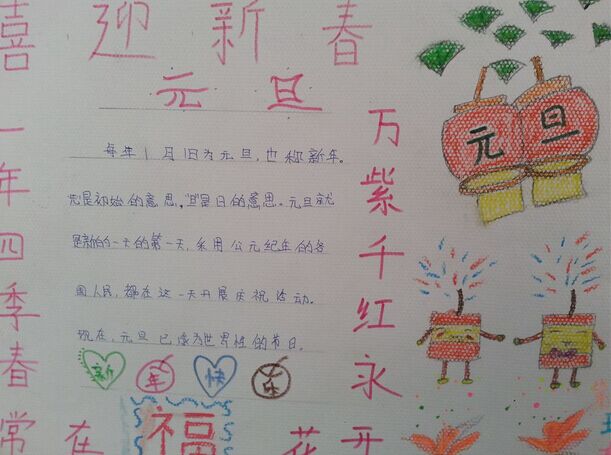 喜迎新春
元旦
每年1月1日为元旦,也称新年。
元是初始的意思,旦是日的意思。元旦就
是新的一天的第一天,采用公元纪年的各
国人民,都在这一天开展庆祝活动。
现在,元旦已成为世界性的节日。
新年快乐
一年四季春常在
福
万紫千红永开花
元旦